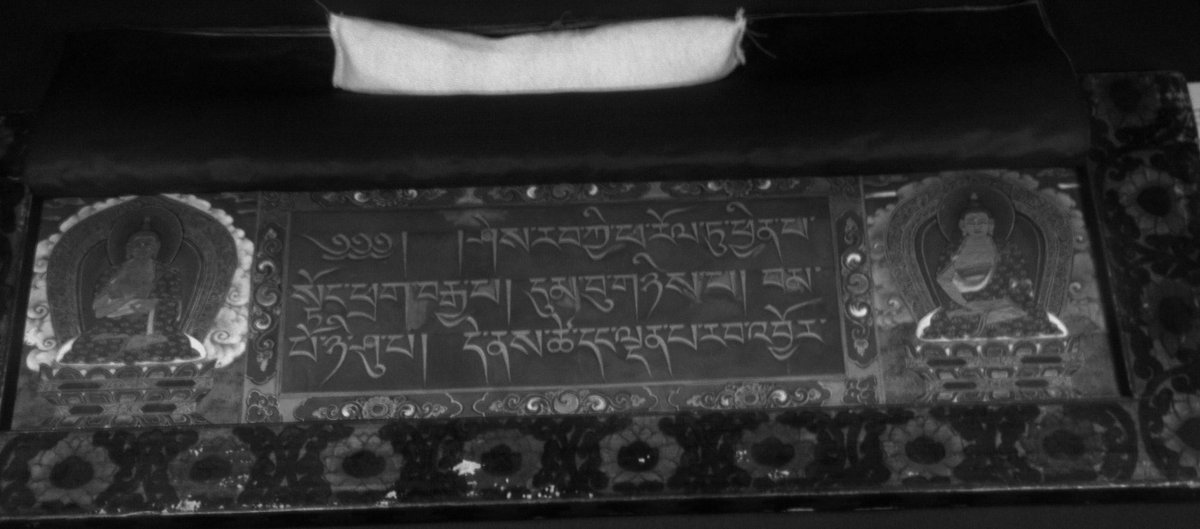 ༄༅༅། །ཤེས་རབ་ཀྱི་ཕ་རོལ་ཏུ་ཕྱིན་པ་
སྟོང་ཕྲག་བརྒྱ་པ། དུམ་བུ་གཉིས་པ།། བམ་
པོ་ཉི་ཤུ་པ། དེ་ནས་ཚེ་དང་ལྡན་པ་རབ་འབྱོར་